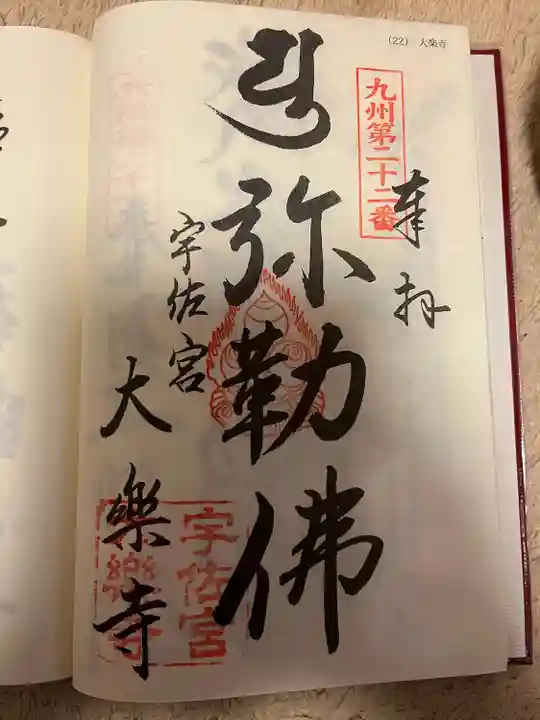 (22) 大楽寺
九州第二十二番
奉拝
弥勒佛
宇佐宮
大樂寺
宇佐宮